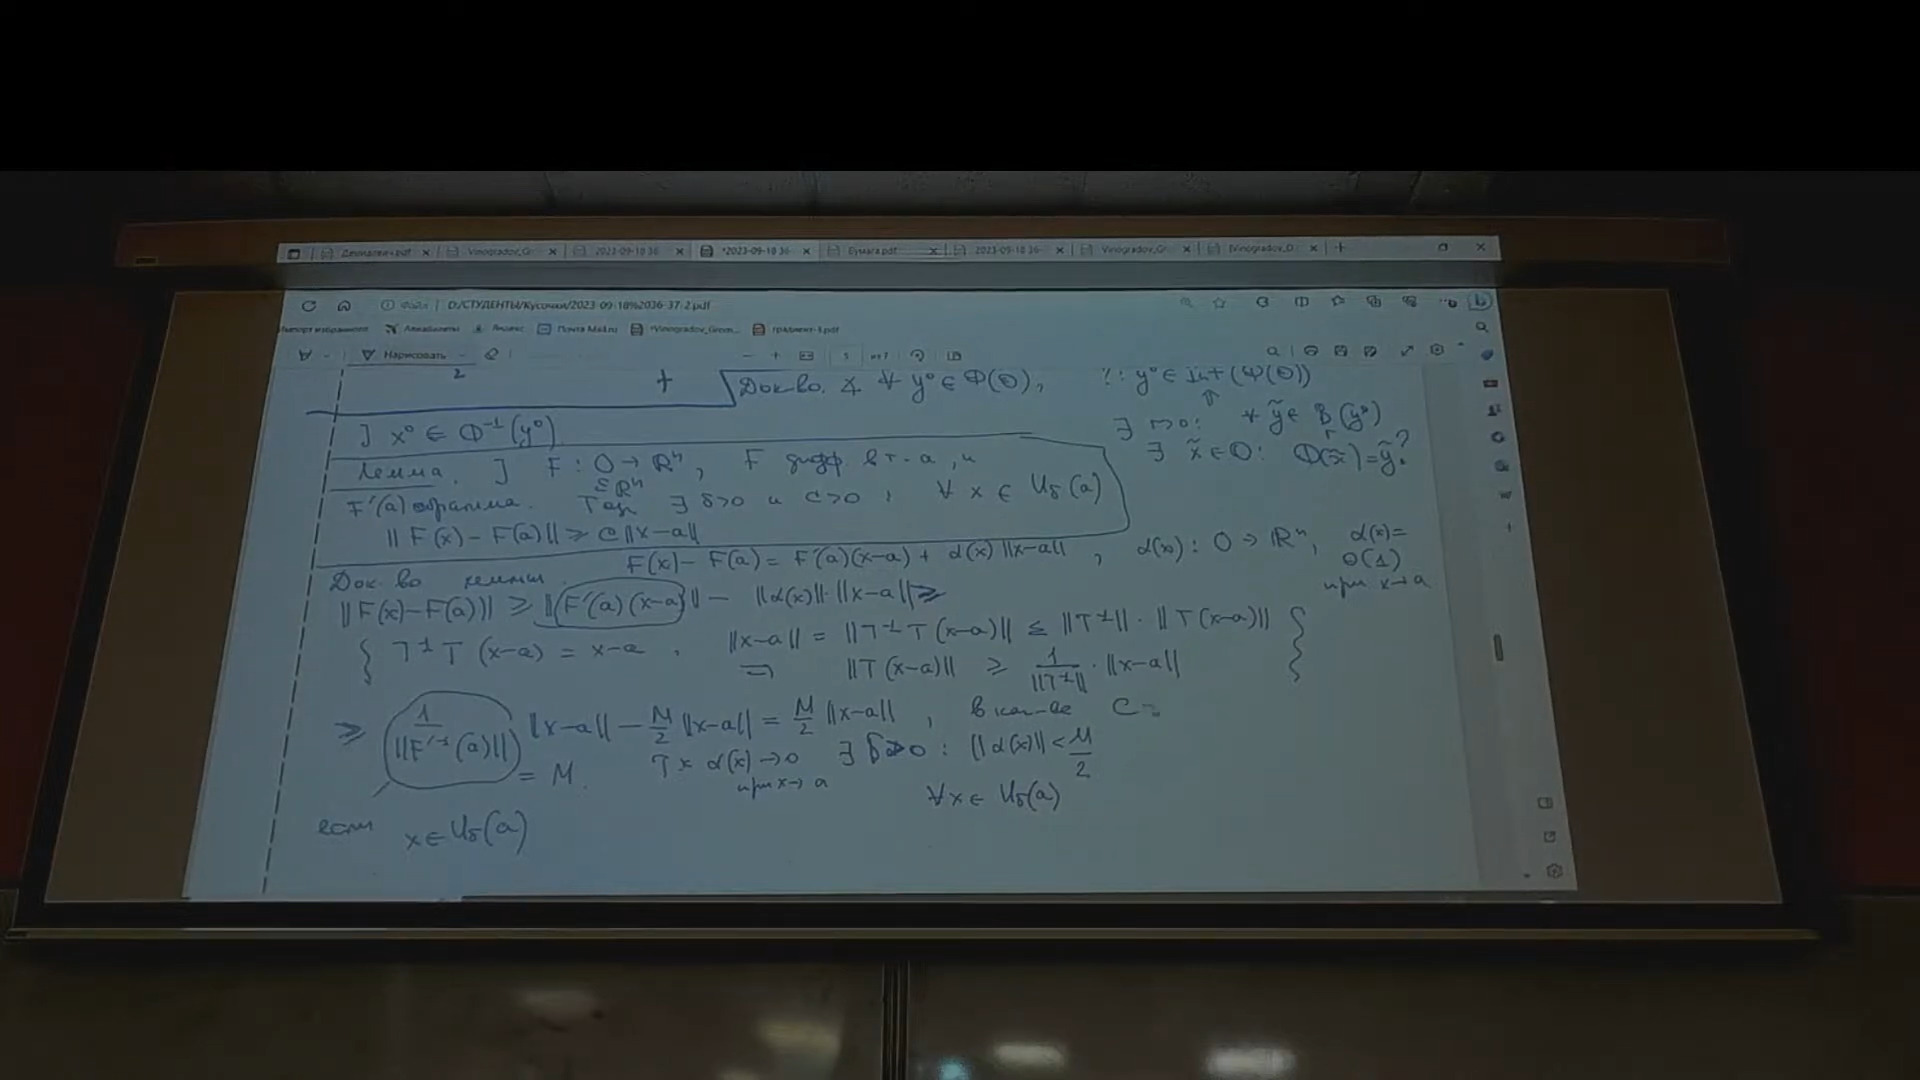 Vinogradov_Gr
2023-09-18 36
*2023-09-18 36
Бумага.pdf
2023-09-18 36
Vinogradov_Gr
[Vinogradov_O
Файл | D:/СТУДЕНТЫ/Кусочки/2023-09-18%2036-37-2.pdf
Импорт избранного
Авиабилеты
Яндекс
Почта Mail.ru
*Vinogradov_Grom...
градиент-3.pdf
Нарисовать
5 из 7
2
+
Док-во. ∡ ∀ y⁰ ∈ Φ(O), ?: y⁰ ∈ Int(Φ(O))
] x⁰ ∈ Φ⁻¹(y⁰)
∃ r>0: ∀ ỹ ∈ B_r(y⁰)
∃ x̃ ∈ O: Φ(x̃) = ỹ?
Лемма. ] F : O → ℝⁿ, F дифф в т. a, и
⊆ ℝⁿ
F'(a) обратима. Тогда ∃ δ>0 и c>0 : ∀ x ∈ U_δ(a)
‖F(x) − F(a)‖ ≥ c‖x−a‖
Док-во леммы. F(x) − F(a) = F'(a)(x−a) + α(x)‖x−a‖, α(x) : O → ℝⁿ, α(x) =
o(1)
при x→a
‖F(x)−F(a)‖ ≥ ‖F'(a)(x−a)‖ − ‖α(x)‖·‖x−a‖ ≥
{ T⁻¹T(x−a) = x−a, ‖x−a‖ = ‖T⁻¹T(x−a)‖ ≤ ‖T⁻¹‖·‖T(x−a)‖ }
⇒ ‖T(x−a)‖ ≥ 1/‖T⁻¹‖ · ‖x−a‖
≥ 1/‖F'⁻¹(a)‖ ‖x−a‖ − M/2 ‖x−a‖ = M/2 ‖x−a‖, в кач-ве C =
= M. Т.к α(x) → 0 ∃ δ>0 : ‖α(x)‖ < M/2
при x→a
∀x ∈ U_δ(a)
если x ∈ U_δ(a)